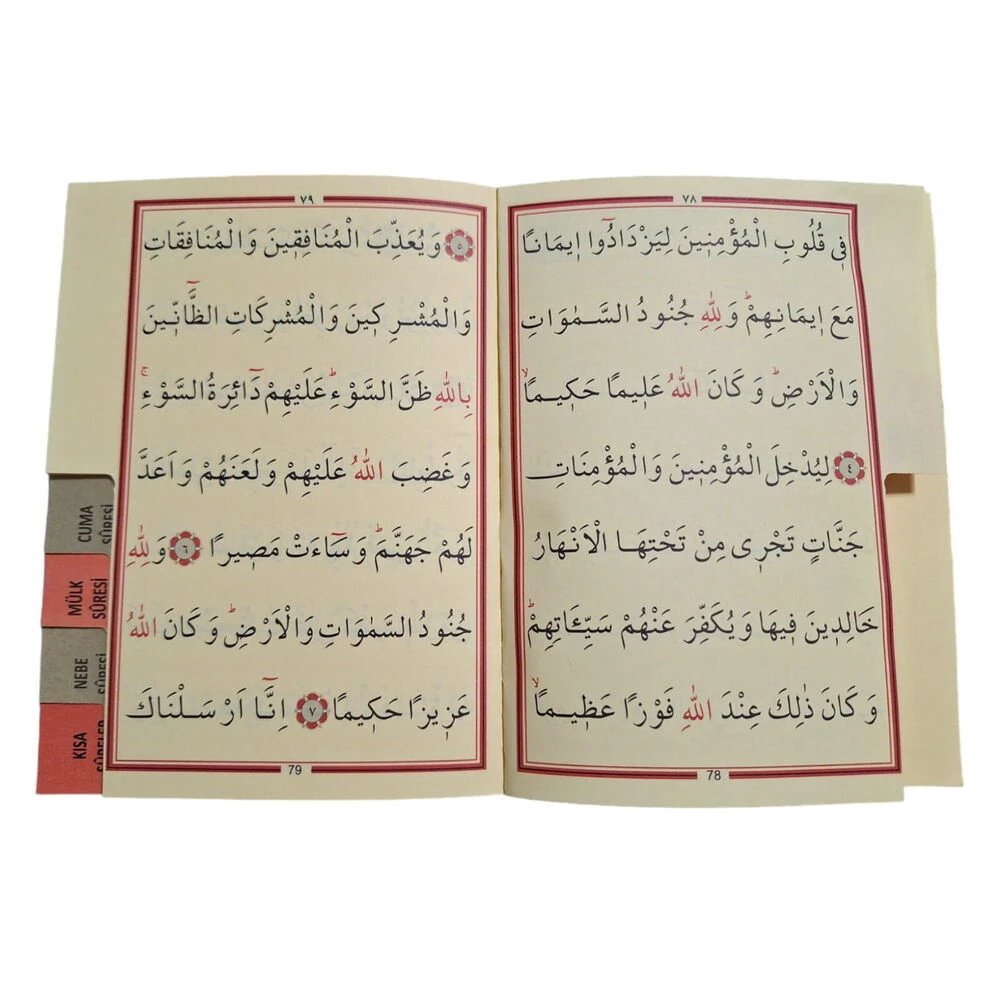 ٧٨
فِى قُلُوبِ الْمُؤْمِنِينَ لِيَزْدَادُٓوا اِيمَانًا
مَعَ اِيمَانِهِمْۜ وَلِلّٰهِ جُنُودُ السَّمٰوَاتِ
وَالْاَرْضِۜ وَكَانَ اللّٰهُ عَلِيمًا حَكِيمًاۙ
﴿٤﴾ لِيُدْخِلَ الْمُؤْمِنِينَ وَالْمُؤْمِنَاتِ
جَنَّاتٍ تَجْرِى مِنْ تَحْتِهَا الْاَنْهَارُ
خَالِدِينَ فِيهَا وَيُكَفِّرَ عَنْهُمْ سَيِّـَٔاتِهِمْۜ
وَكَانَ ذٰلِكَ عِنْدَ اللّٰهِ فَوْزًا عَظِيمًاۙ
78
٧٩
﴿٥﴾ وَيُعَذِّبَ الْمُنَافِقِينَ وَالْمُنَافِقَاتِ
وَالْمُشْرِكِينَ وَالْمُشْرِكَاتِ الظَّٓانِّينَ
بِاللّٰهِ ظَنَّ السَّوْءِۜ عَلَيْهِمْ دَٓائِرَةُ السَّوْءِۚ
وَغَضِبَ اللّٰهُ عَلَيْهِمْ وَلَعَنَهُمْ وَاَعَدَّ
لَهُمْ جَهَنَّمَۜ وَسَٓاءَتْ مَصِيرًا ﴿٦﴾ وَلِلّٰهِ
جُنُودُ السَّمٰوَاتِ وَالْاَرْضِۜ وَكَانَ اللّٰهُ
عَزِيزًا حَكِيمًا ﴿٧﴾ اِنَّٓا اَرْسَلْنَاكَ
79
CUMA
SÛRESİ
MÜLK
SÛRESİ
NEBE
SÛRESİ
KISA
SÛRELER